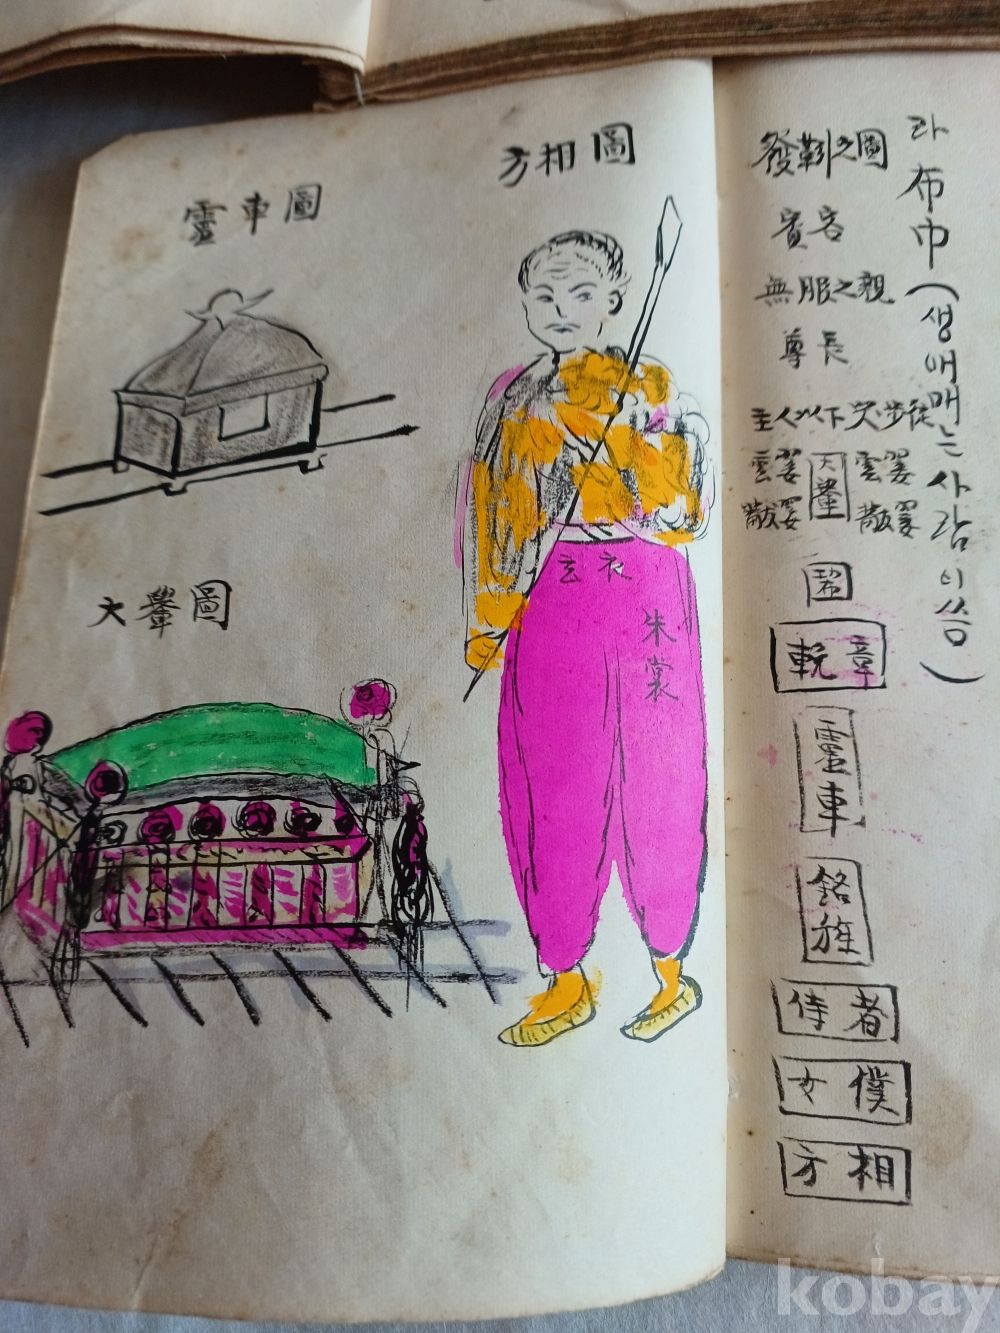 라 布巾 (생애매는 사람이 씀)
發靷之圖
賓客
無服之親
尊長
主人以下哭步從
雲翣 大轝 雲翣
黻翣 黻翣
輓章
靈車
銘旌
侍者
女僕
方相
方相圖
靈車圖
玄衣
朱裳
大轝圖
kobay